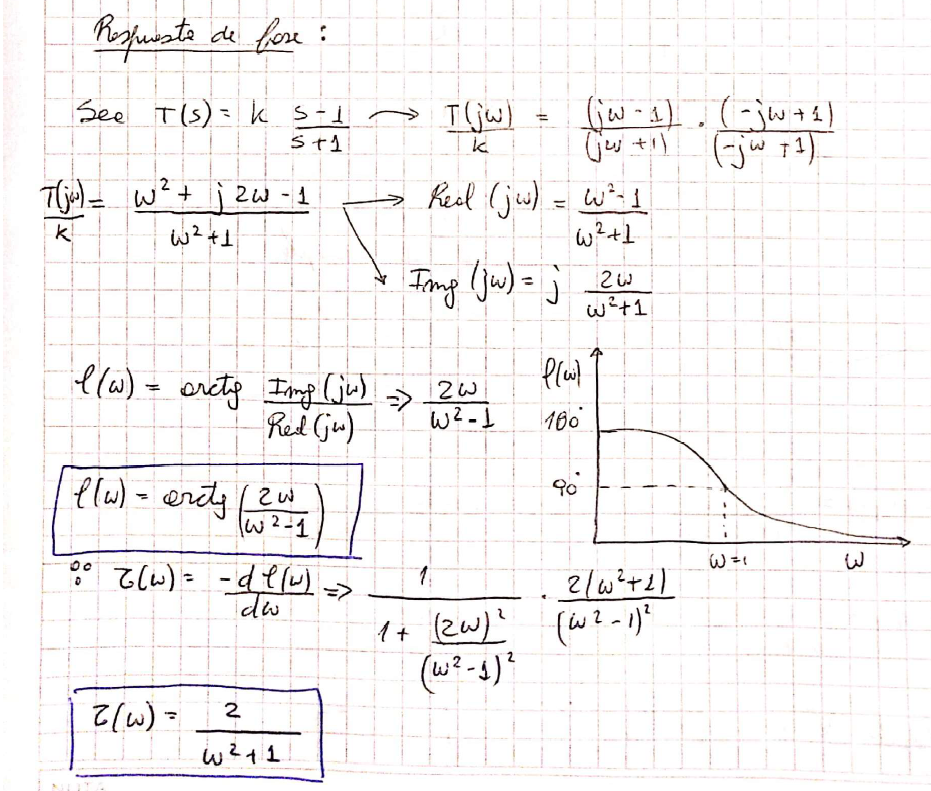 Respuesta de fase :
See T(s) = k (s-1)/(s+1) → T(jω)/k = (jω-1)/(jω+1) . (-jω+1)/(-jω+1)
T(jω)/k = (ω²+ j 2ω-1)/(ω²+1) → Real (jω) = (ω²-1)/(ω²+1)
Img (jω) = j 2ω/(ω²+1)
φ(ω) = arctg Img (jω)/Real (jω) => 2ω/(ω²-1)
φ(ω)
180°
90°
ω=1
ω
φ(ω) = arctg (2ω/(ω²-1))
∴ τ(ω) = -dφ(ω)/dω => 1/(1+ (2ω)²/(ω²-1)²) . 2(ω²+1)/(ω²-1)²
τ(ω) = 2/(ω²+1)